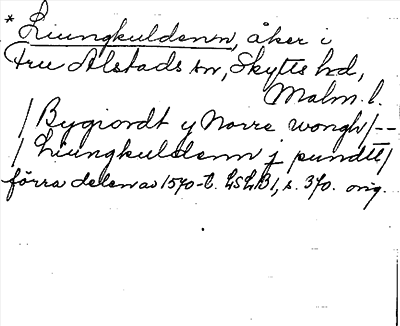 * Liungkuldenn, åker i
Fru Alstads sn, Skytts hd,
Malm. l.
/ Bygiordt y Norre wongh / --
/ Liungkuldenn j pundtt /
förra delen av 1570-t. LSLB1, s. 370. orig.